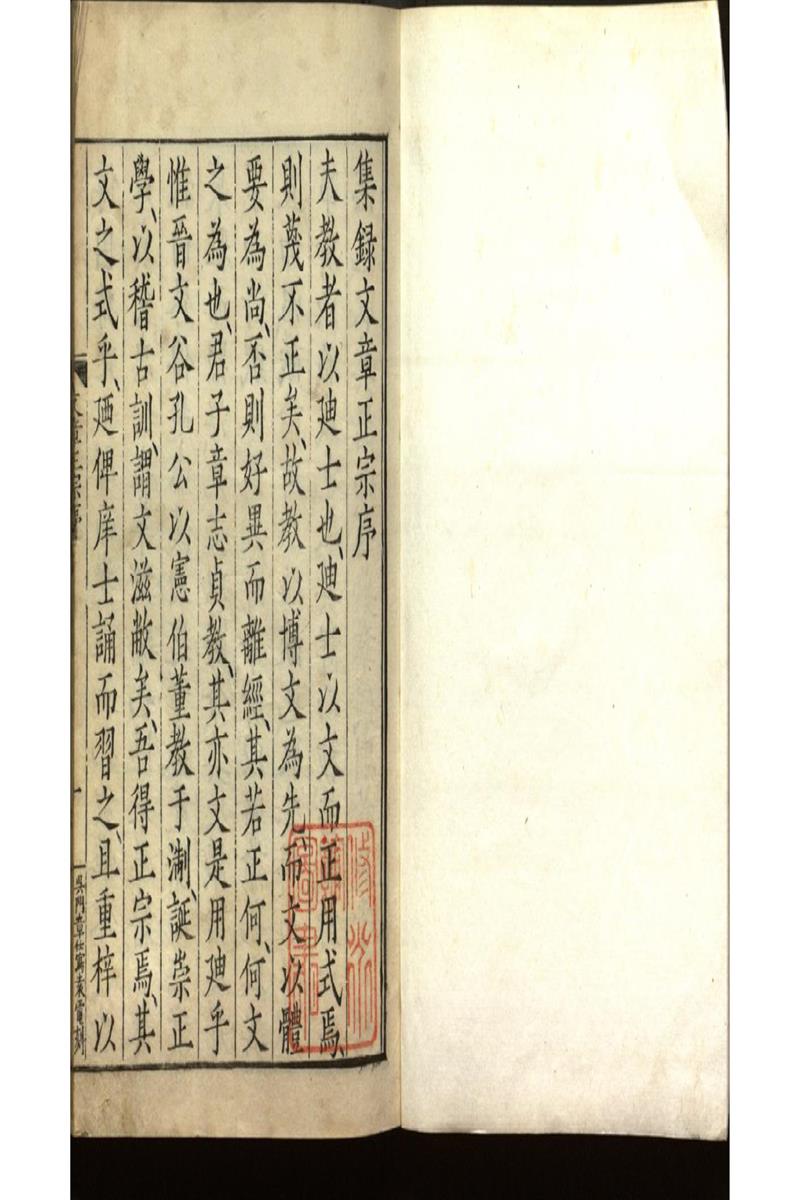 集録文章正宗序
夫教者以廸士也、廸士以文而正用式焉、
則蔑不正矣、故教以博文為先、而文以體
要為尚、否則好異而離經、其若正何、何文
之為也、君子章志貞教、其亦文是用廸乎
惟晉文谷孔公以憲伯董教于淛、誕崇正
學、以稽古訓、謂文滋敝矣、吾得正宗焉、其
文之式乎、廼俾庠士誦而習之、且重梓以
文章正宗序
吳門章仕寫袁電刻